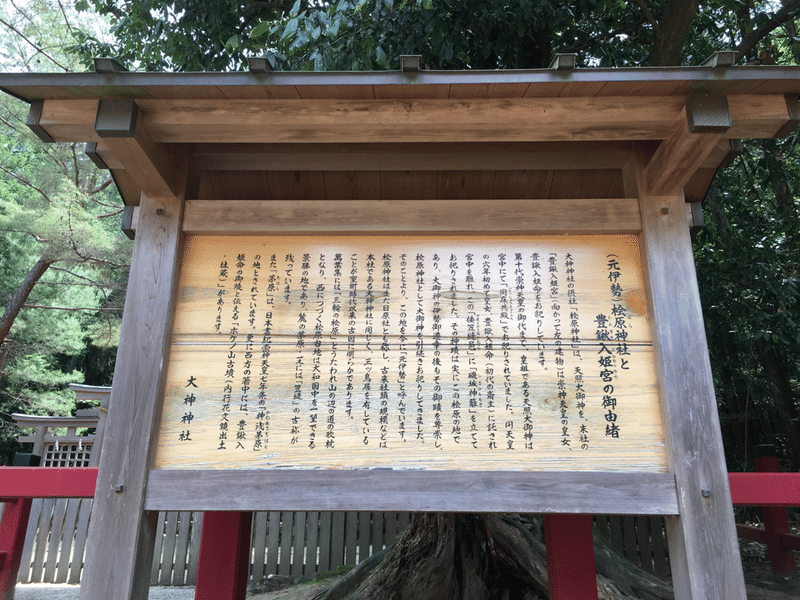 (元伊勢) 桧原神社と
豊鍬入姫宮の御由緒
大神神社の摂社「桧原神社」は、天照大御神を、末社の
「豊鍬入姫宮」(向かって左の建物)は崇神天皇の皇女、
豊鍬入姫命をお祀りしています。
第十代崇神天皇の御代まで、皇祖である天照大御神は
宮中にて「同床共殿」でお祀りされていました。同天皇
の六年初めて皇女、豊鍬入姫命(初代の斎王)に託され
宮中を離れ、この「倭笠縫邑」に「磯城神籬」を立てて
お祀りされました。その神蹟は実にこの桧原の地で
あり、大御神の伊勢御遷幸の後もその御蹟を尊崇し、
桧原神社として大御神を引続きお祀りしてきました。
そのことより、この地を今に「元伊勢」と呼んでいます。
桧原神社はまた日原社とも称し、古来社頭の規模などは
本社である大神神社に同じく、三ツ鳥居を有している
ことが室町時代以来の古図に明らかであります。
萬葉集には「三輪の桧原」とうたわれ山の辺の道の歌枕
となり、西につづく桧原台地は大和国中を一望できる
景勝の地であり、麓の茅原・芝には「笠縫」の古称が
残っています。
また「茅原」は、日本書紀崇神天皇七年条の「神浅茅原」
の地とされています。更に西方の箸中には、豊鍬入
姫命の御陵と伝える「ホケノ山古墳(内行花文鏡出土
・社蔵)」があります。
大神神社